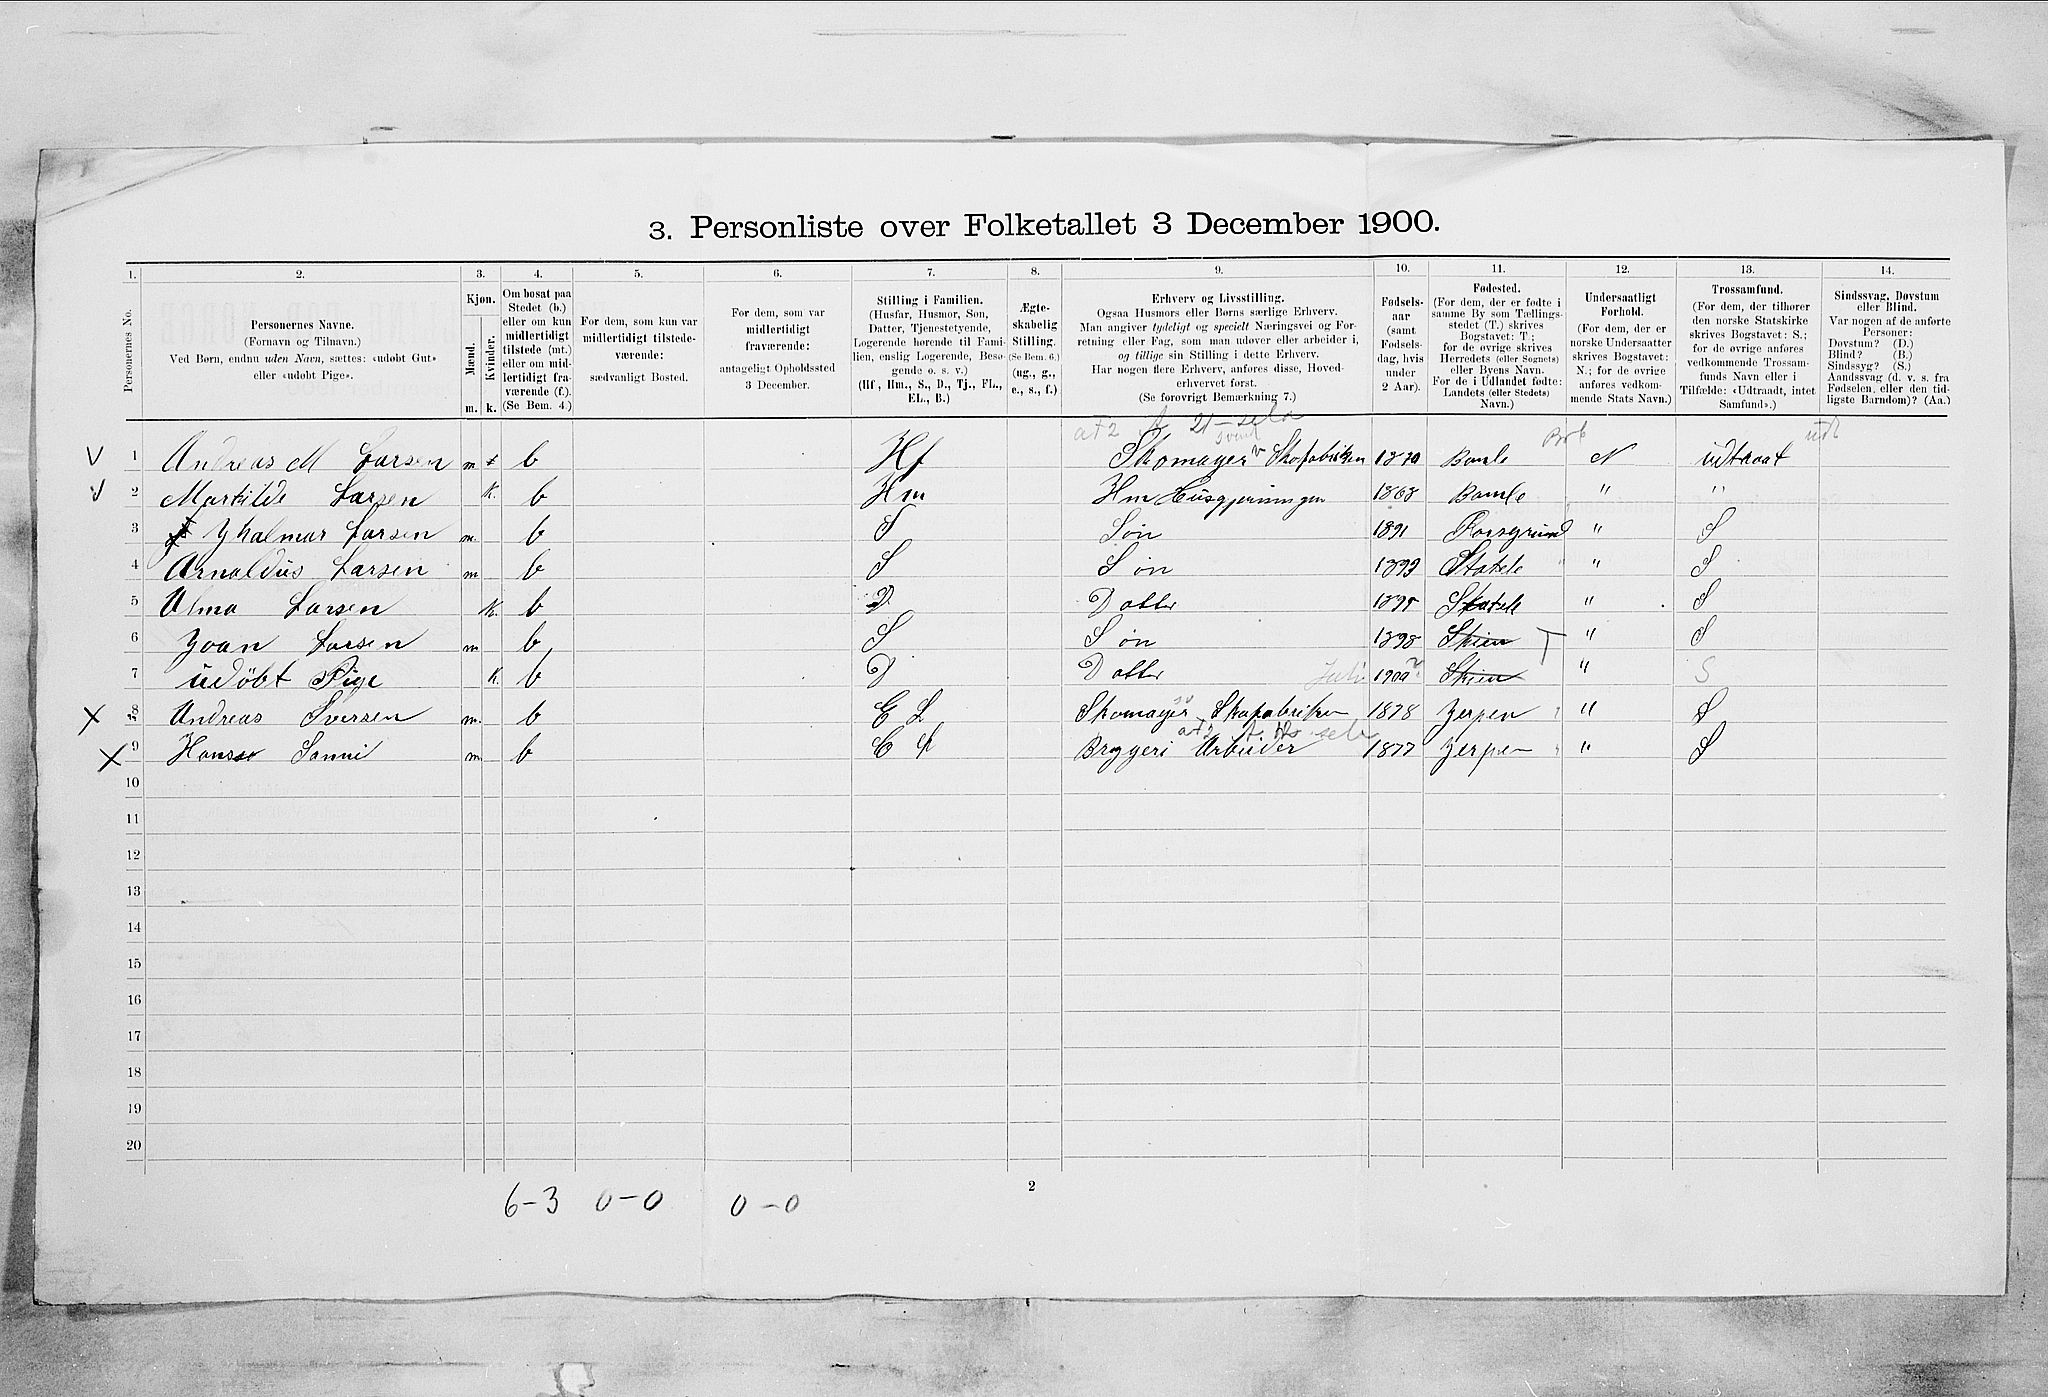 3. Personliste over Folketallet 3 December 1900.
1. 2. 3. 4. 5. 6. 7. 8. 9. 10. 11. 12. 13. 14.
Personernes No.
Personernes Navne.
(Fornavn og Tilnavn.)
Ved Børn, endnu uden Navn, sættes: «udøbt Gut»
eller «udøbt Pige».
Kjøn.
Mænd.
Kvinder.
m. k.
Om bosat paa
Stedet (b.)
eller om kun
midlertidigt
tilstede (mt.)
eller om mid-
lertidigt fra-
værende (f.).
(Se Bem. 4.)
For dem, som kun var
midlertidigt tilstede-
værende:
sædvanligt Bosted.
For dem, som var
midlertidigt
fraværende:
antageligt Opholdssted
3 December.
Stilling i Familien.
(Husfar, Husmor, Søn,
Datter, Tjenestetyende,
Logerende hørende til Fami-
lien, enslig Logerende, Besø-
gende o. s. v.)
(Hf, Hm., S., D., Tj., FL.,
EL., B.)
Ægte-
skabelig
Stilling.
(Se Bem. 6.)
(ug., g.,
e., s., f.)
Erhverv og Livsstilling.
Ogsaa Husmors eller Børns særlige Erhverv.
Man angiver tydeligt og specielt Næringsvei og For-
retning eller Fag, som man udøver eller arbeider i,
og tillige sin Stilling i dette Erhverv.
Har nogen flere Erhverv, anføres disse, Hoved-
erhvervet først.
(Se forøvrigt Bemærkning 7.)
Fødsels-
aar
(samt
Fødsels-
dag, hvis
under
2 Aar).
Fødested.
(For dem, der er fødte i
samme By som Tællings-
stedet (T.) skrives
Bogstavet: T.;
for de øvrige skrives
Herredets (eller Sognets)
eller Byens Navn.
For de i Udlandet fødte:
Landets (eller Stedets)
Navn.)
Undersaatligt
Forhold.
(For dem, der er
norske Undersaatter
skrives Bogstavet:
N.; for de øvrige
anføres vedkom-
mende Stats Navn.)
Trossamfund.
(For dem, der tilhører
den norske Statskirke
skrives Bogstavet: S.;
for de øvrige anføres
vedkommende Trossam-
funds Navn eller i
Tilfælde: «Udtraadt, intet
Samfund».)
Sindssvag, Døvstum
eller Blind.
Var nogen af de anførte
Personer:
Døvstum? (D.)
Blind? (B.)
Sindssyg? (S.)
Aandssvag (d. v. s. fra
Fødselen, eller den tid-
ligste Barndom)? (Aa.)
1 Andreas M Larsen m b Hf Skomager v Skofabriken 1870 Bamle N udtraat
2 Martilde Larsen K. b Hm Hm Husgjerningen 1868 Bamle " "
3 Yhalmar Larsen m. b S Søn 1891 Porsgrund " S
4 Arnoldus Larsen m b S Søn 1893 " S
5 Alma Larsen K. b D Datter " S
6 Johan Larsen m b S Søn 1898 Skien T " S
7 udøbt Pige K. b D Datter Juli 1900 Skien " S
8 Andreas Iversen m. b E L Skomager Skofabriken 1878 Gjerpen " S
9 Hans m. b E L Bryggeri Arbeider 1877 Gjerpen " S
10
11
12
13
14
15
16
17
18
19
20
6-3 0-0 0-0
2